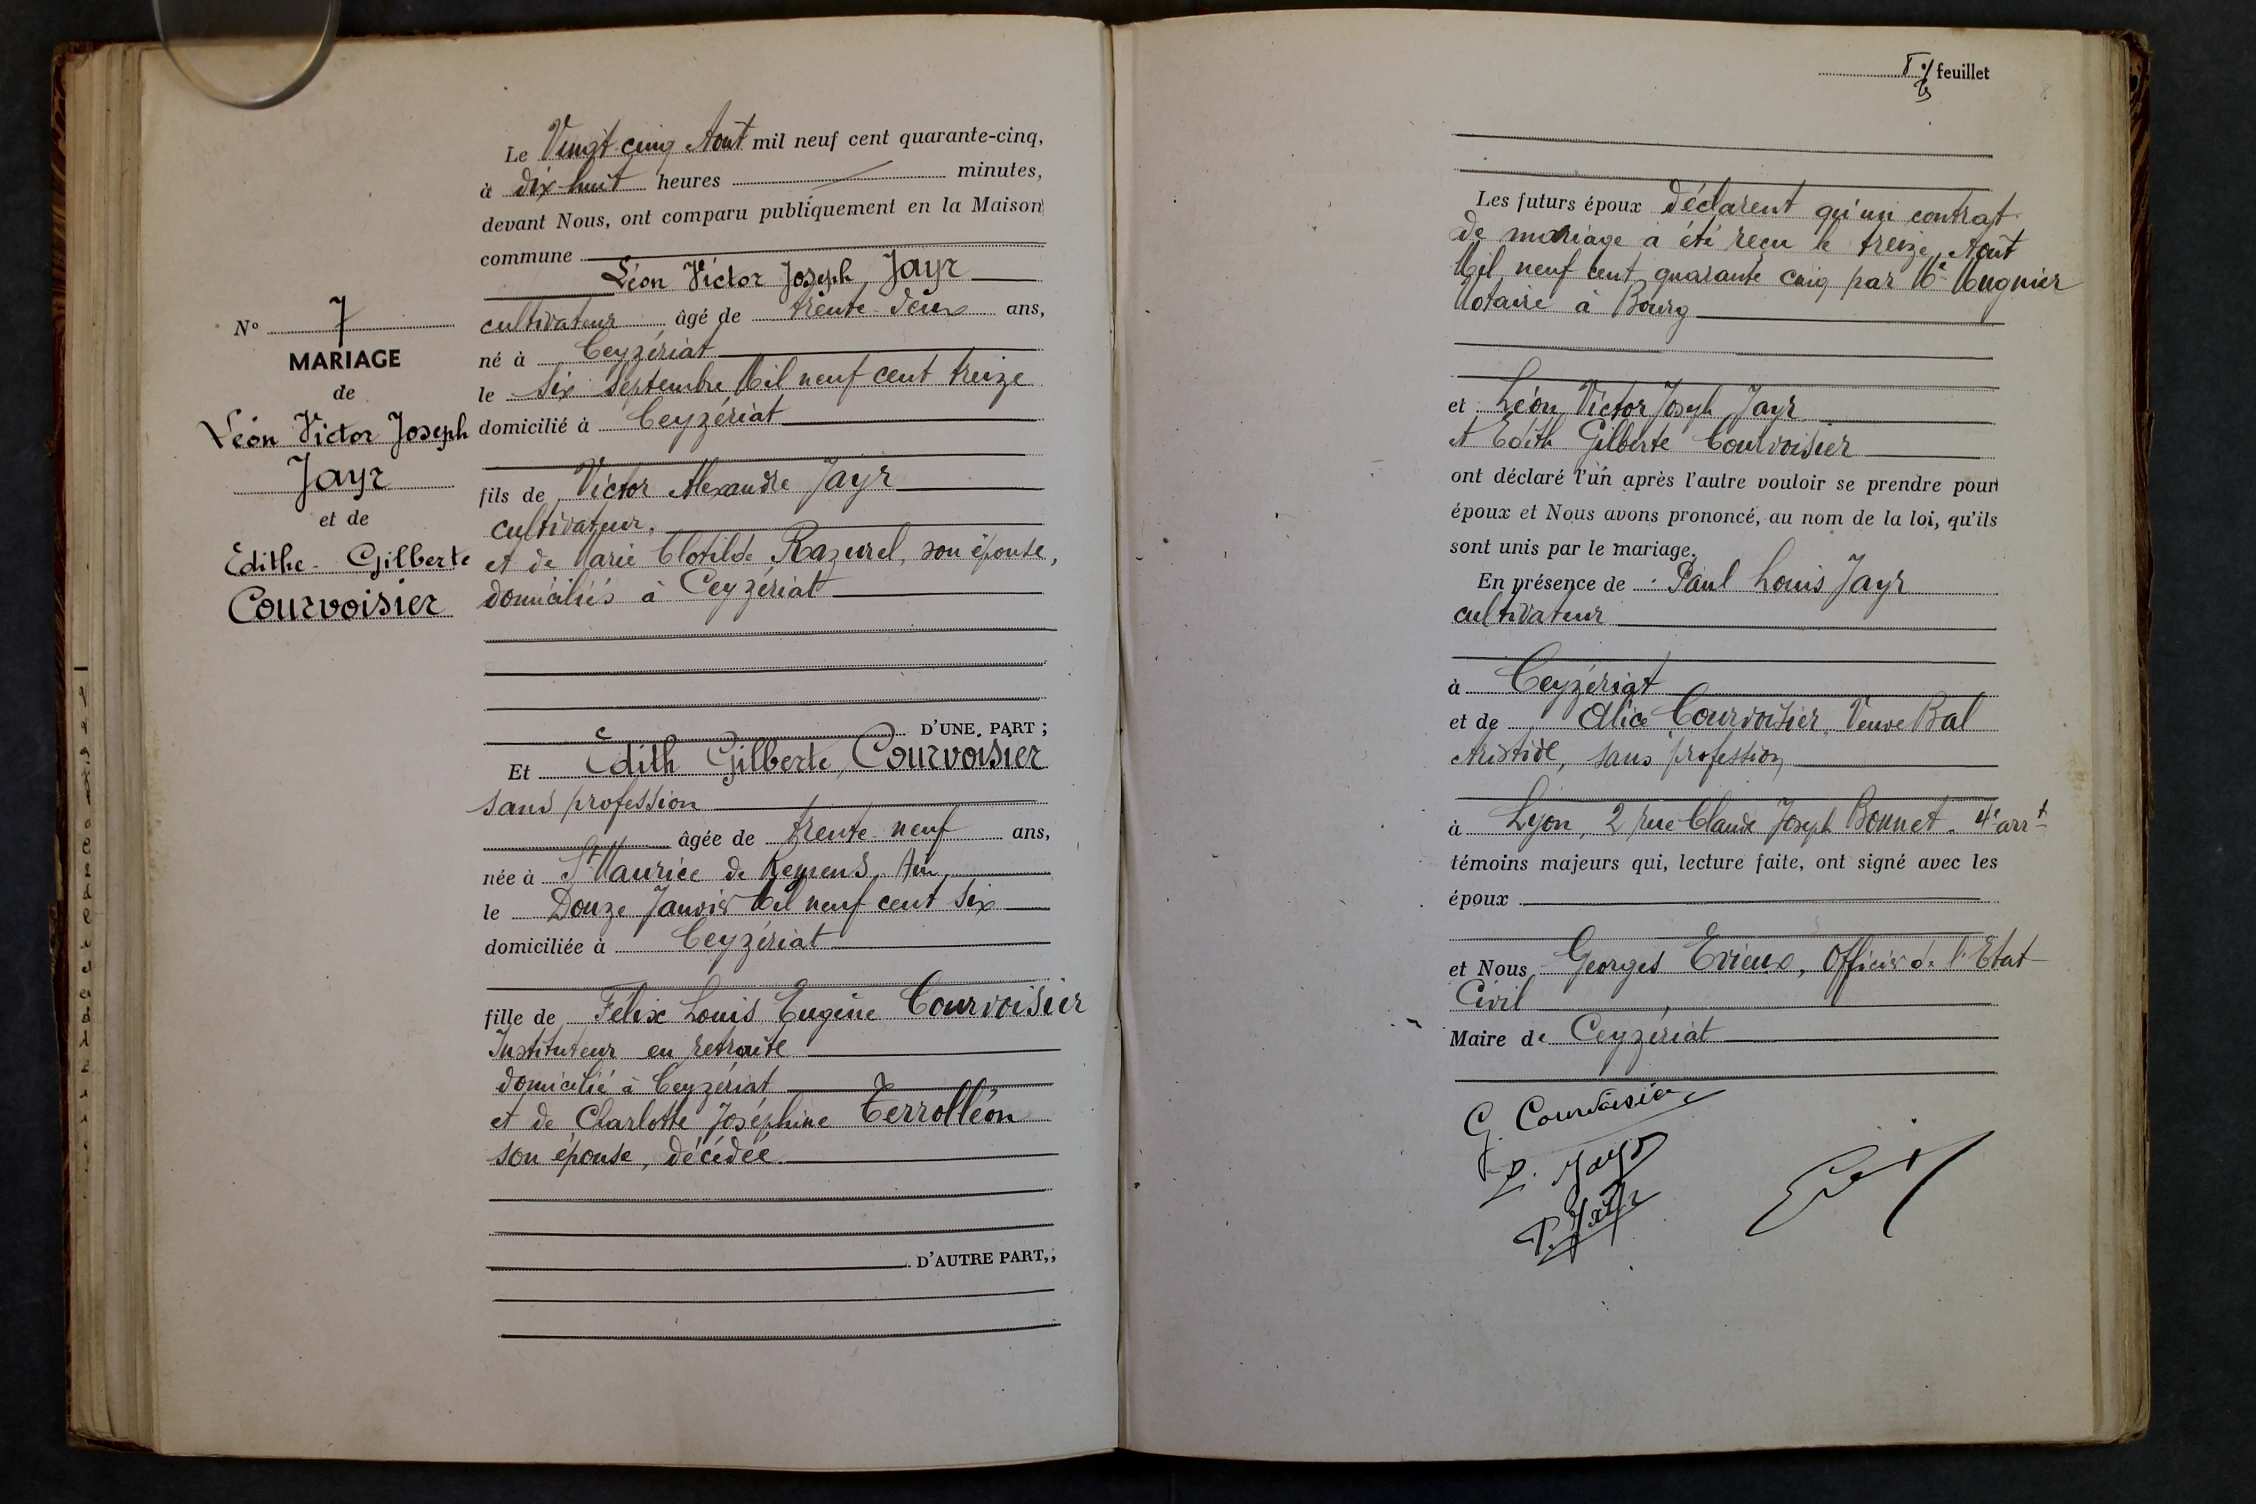 Le Vingt cinq Aout mil neuf cent quarante-cinq,
à dix-huit heures minutes,
devant Nous, ont comparu publiquement en la Maison
commune
Léon Victor Joseph Jayr
cultivateur âgé de trente-deux ans,
né à Ceyzériat
le six septembre Mil neuf cent treize
domicilié à Ceyzériat
fils de Victor Alexandre Jayr
cultivateur.
et de Marie Clotilde Razurel, son épouse,
domiciliés à Ceyzériat
D'UNE PART ;
Et Edith Gilberte Courvoisier
sans profession
âgée de trente-neuf ans,
née à St Maurice de Remens, Ain,
le Douze Janvier Mil neuf cent six
domiciliée à Ceyzériat
fille de Félix Louis Eugène Courvoisier
Instituteur en retraite
domicilié à Ceyzériat
et de Charlotte Joséphine Terrolléon
son épouse, décédée.
D'AUTRE PART,;
No 7
MARIAGE
de
Léon Victor Joseph
Jayr
et de
Edithe - Gilberte
Courvoisier
8 feuillet
Les futurs époux déclarent qu'un contrat
de mariage a été reçu le treize Aout
Mil neuf cent quarante cinq par Me Mugnier
Notaire à Bourg
et Léon Victor Joseph Jayr
et Edith Gilberte Courvoisier
ont déclaré l'un après l'autre vouloir se prendre pour
époux et Nous avons prononcé, au nom de la loi, qu'ils
sont unis par le mariage.
En présence de Paul Louis Jayr
cultivateur
à Ceyzériat
et de Alice Courvoisier, Veuve Bal
Aristide, sans profession
à Lyon, 2 rue Claude Joseph Bonnet. 4e arrt
témoins majeurs qui, lecture faite, ont signé avec les
époux
et Nous Georges Evieux, Officier de l'Etat
Civil
Maire de Ceyzériat
G. Courvoisier
L. Jayr
P. Jayr